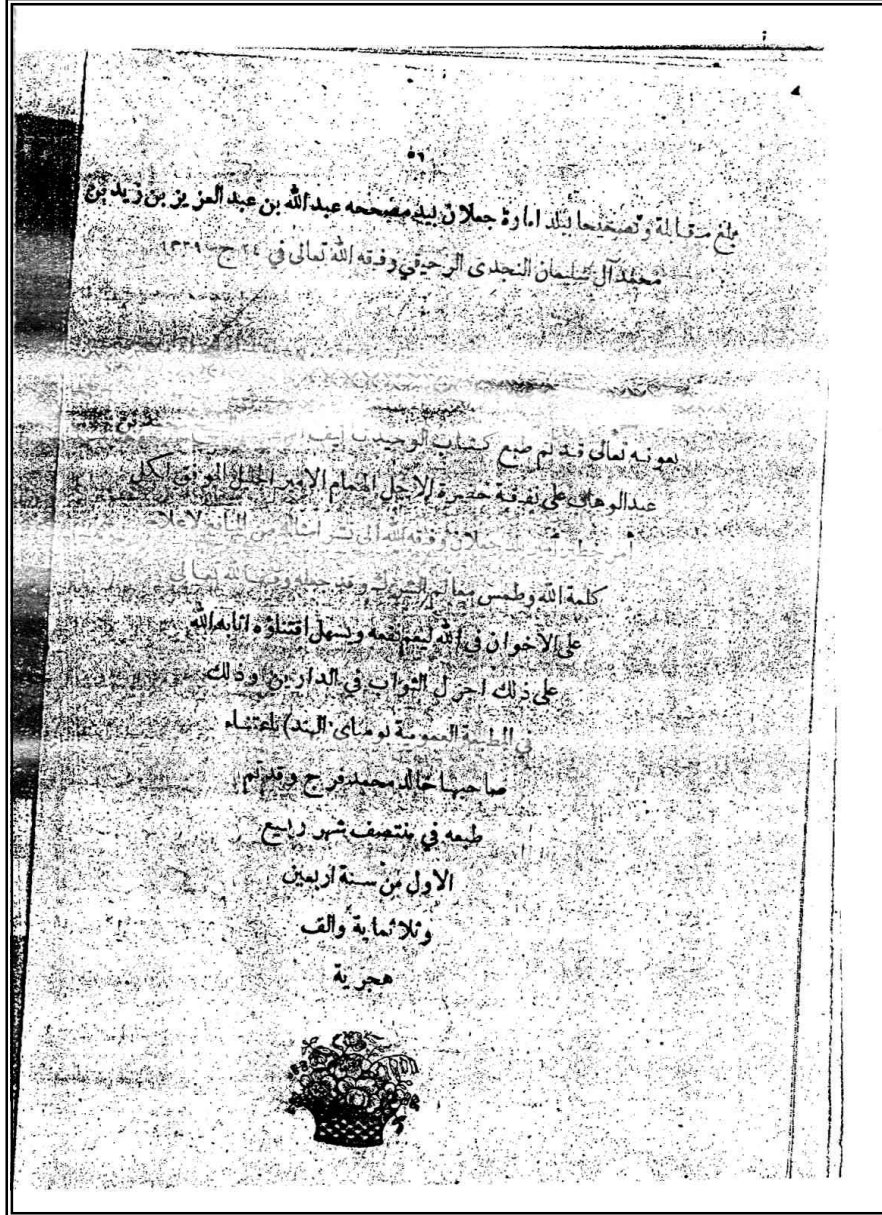 ٥٦
بلغ مقابلة وتصحيحا ببلد امارة جعلان بيد مصححه عبد الله بن عبد العزيز بن زيد بن
محمد آل سليمان النجدى الرحيقي وفقه الله تعالى في ٢٤ ج ١٣٣٩
بعونه تعالى قد تم طبع كتاب التوحيد تأليف
عبدالوهاب على نفقة حضرة الاجل الهمام الامير الجليل الموفق لكل
أمر خطير أمير بلد جعلان وفقه الله الى نشر امثاله من لاعلاء
كلمة الله وطمس معالم الشرك وقد جعله وقفا لله تعالى
على الاخوان في الله ليعم نفعه ويسهل اقتناؤه اثابه الله
على ذلك اجزل الثواب في الدارين وذلك
في المطبعة العمومية بومباى (الهند) باعتناء
صاحبها خالد محمد فرج وقد تم
طبعه في منتصف شهر ربيع
الاول من سنة اربعين
وثلاثماية والف
هجرية